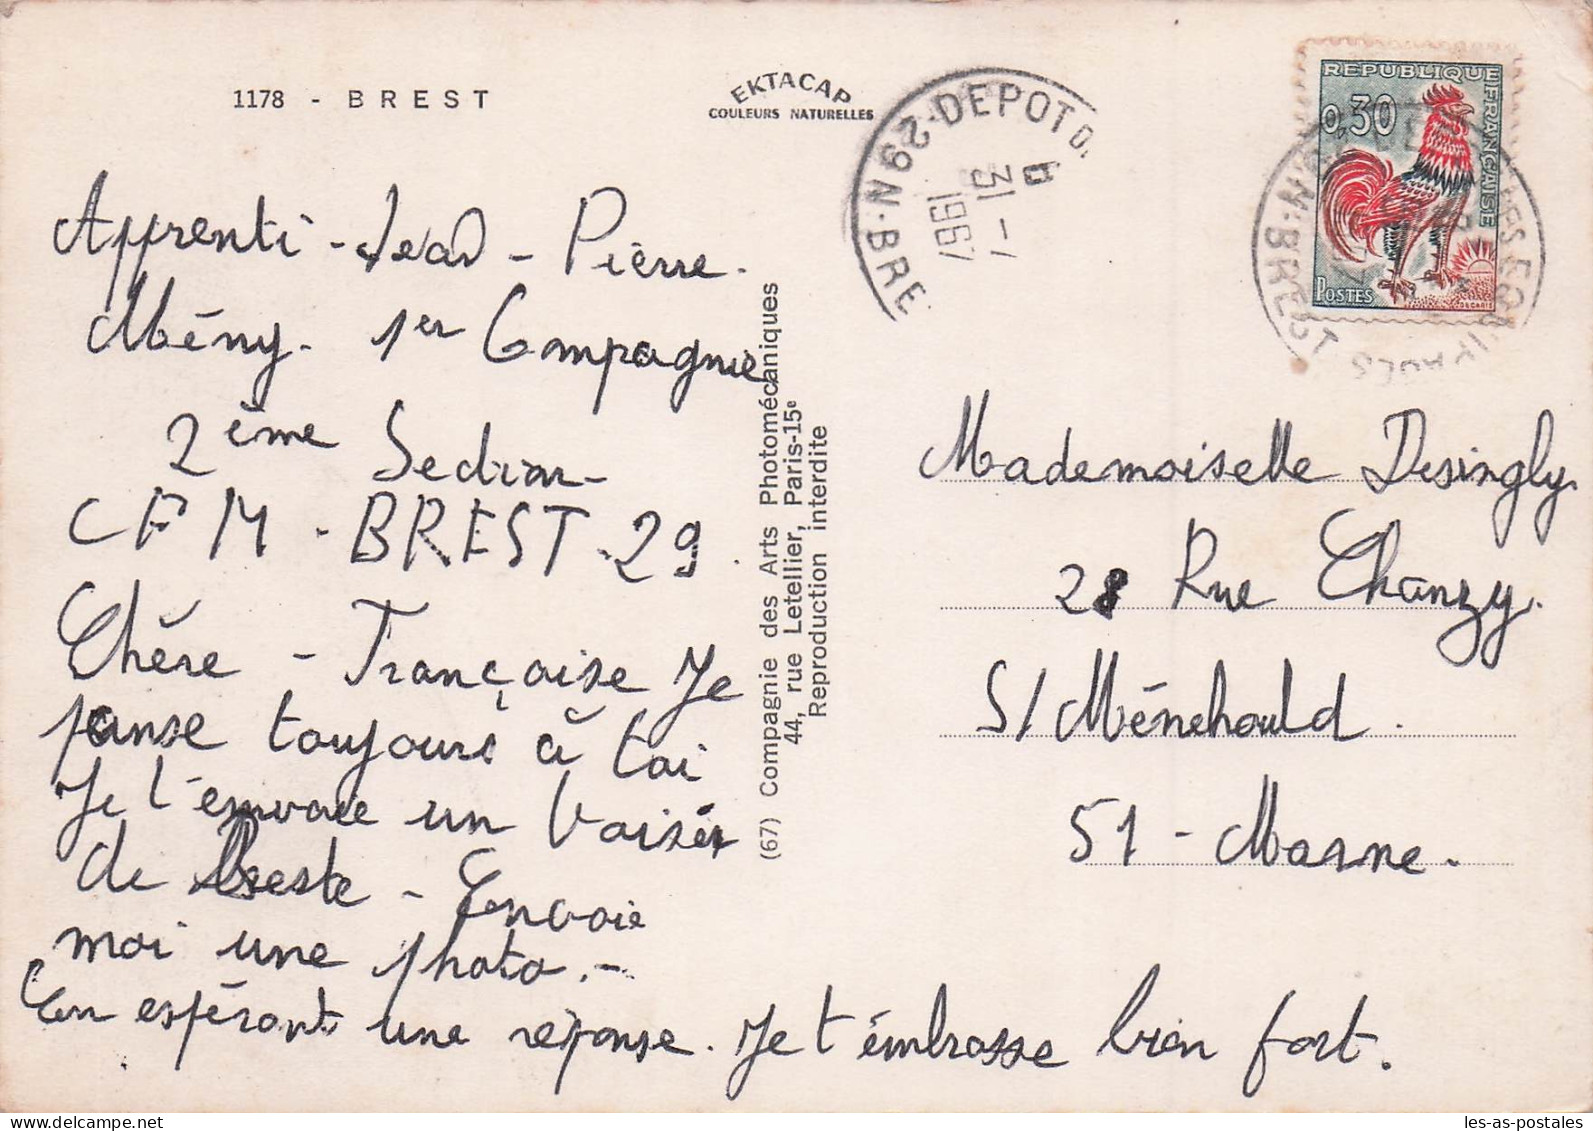 1178 - BREST
EKTACAP
COULEURS NATURELLES
Apprenti - Jean - Pierre.
Mény. 1er Compagnie
2ème Section
CFM - BREST-29.
Chère - Françoise Je
panse toujours à toi
Je t'envoie un baisér
de Breste - Envoie
moi une photo.-
En espérant une réponse. Je t'émbrasse bien fort.
(67) Compagnie des Arts Photomécaniques
44, rue Letellier, Paris-15e
Reproduction interdite
29N·BRE
DEPOT D.
31-1
1967
REPUBLIQUE FRANÇAISE
0,30
POSTES
BREST
Mademoiselle Desingly.
28 Rue Chanzy.
S/Ménehould.
51 - Marne.
les-as-postales